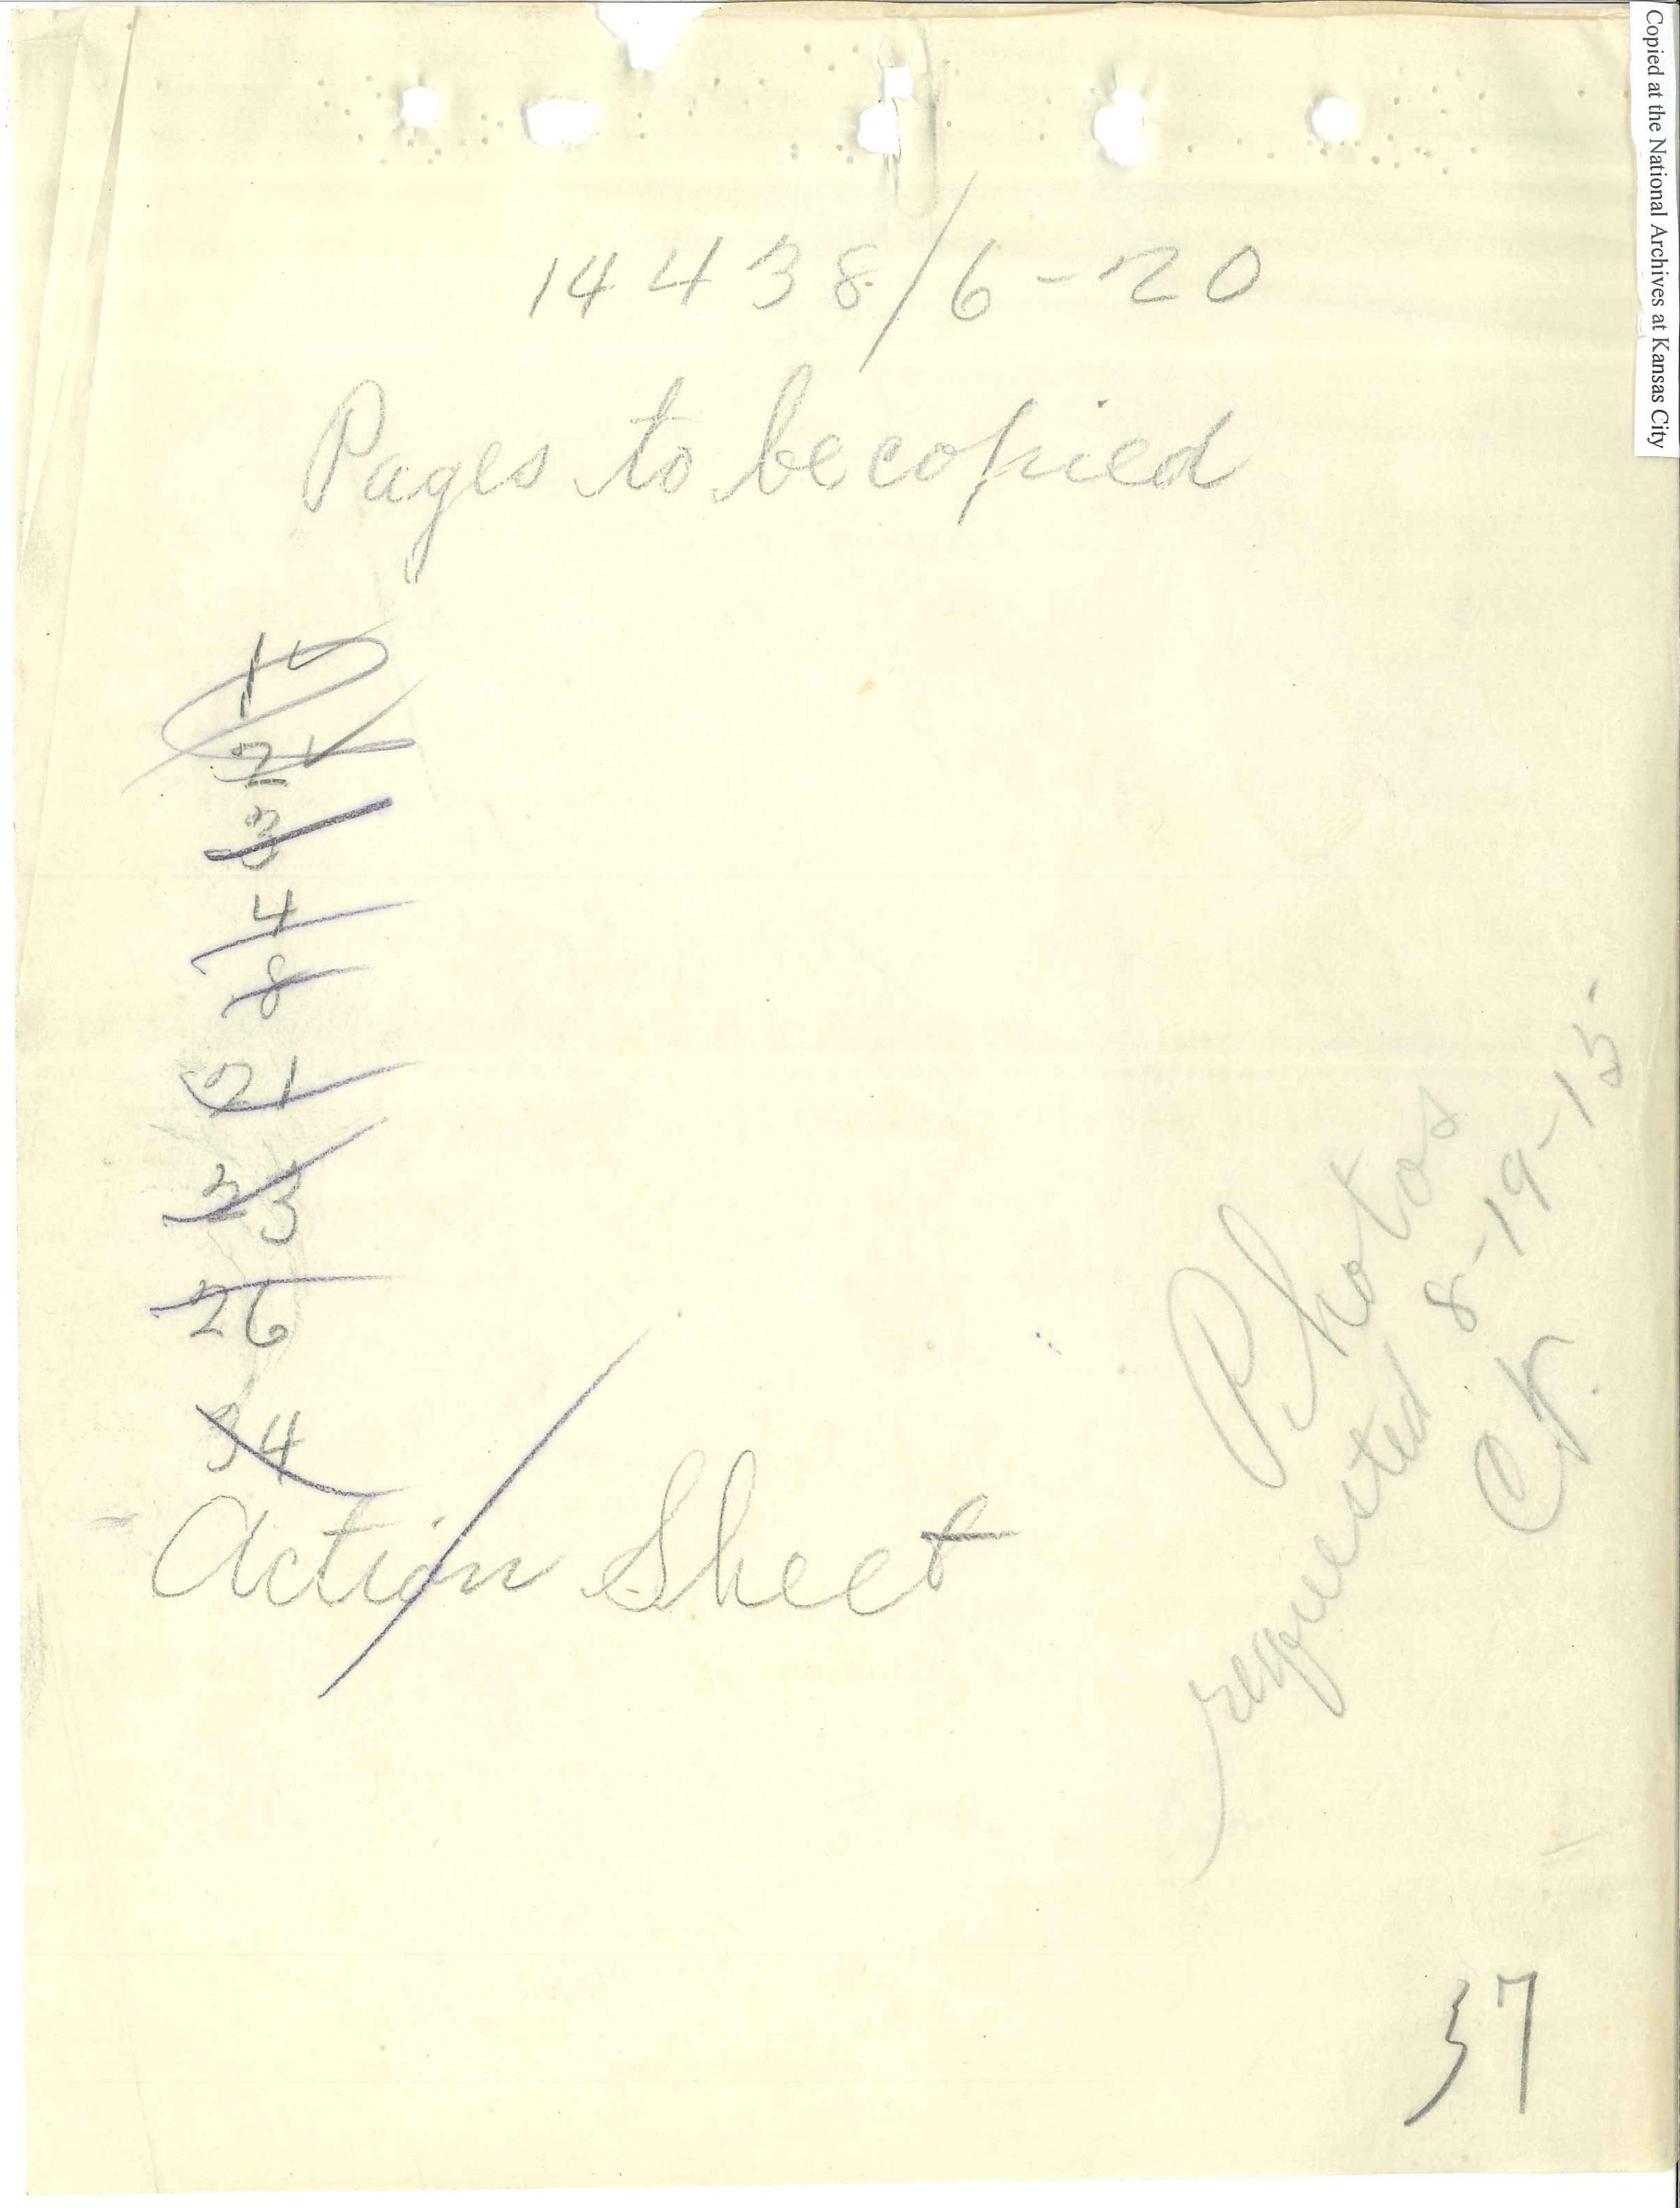 Copied at the National Archives at Kansas City
14438/6-20
Pages to be copied
1
2
3
4
8
21
23
26
34
Action Sheet
Photos
requested 8-19-15
37